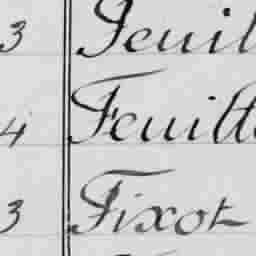 3 Feuil
4 Feuill
3 Fixot